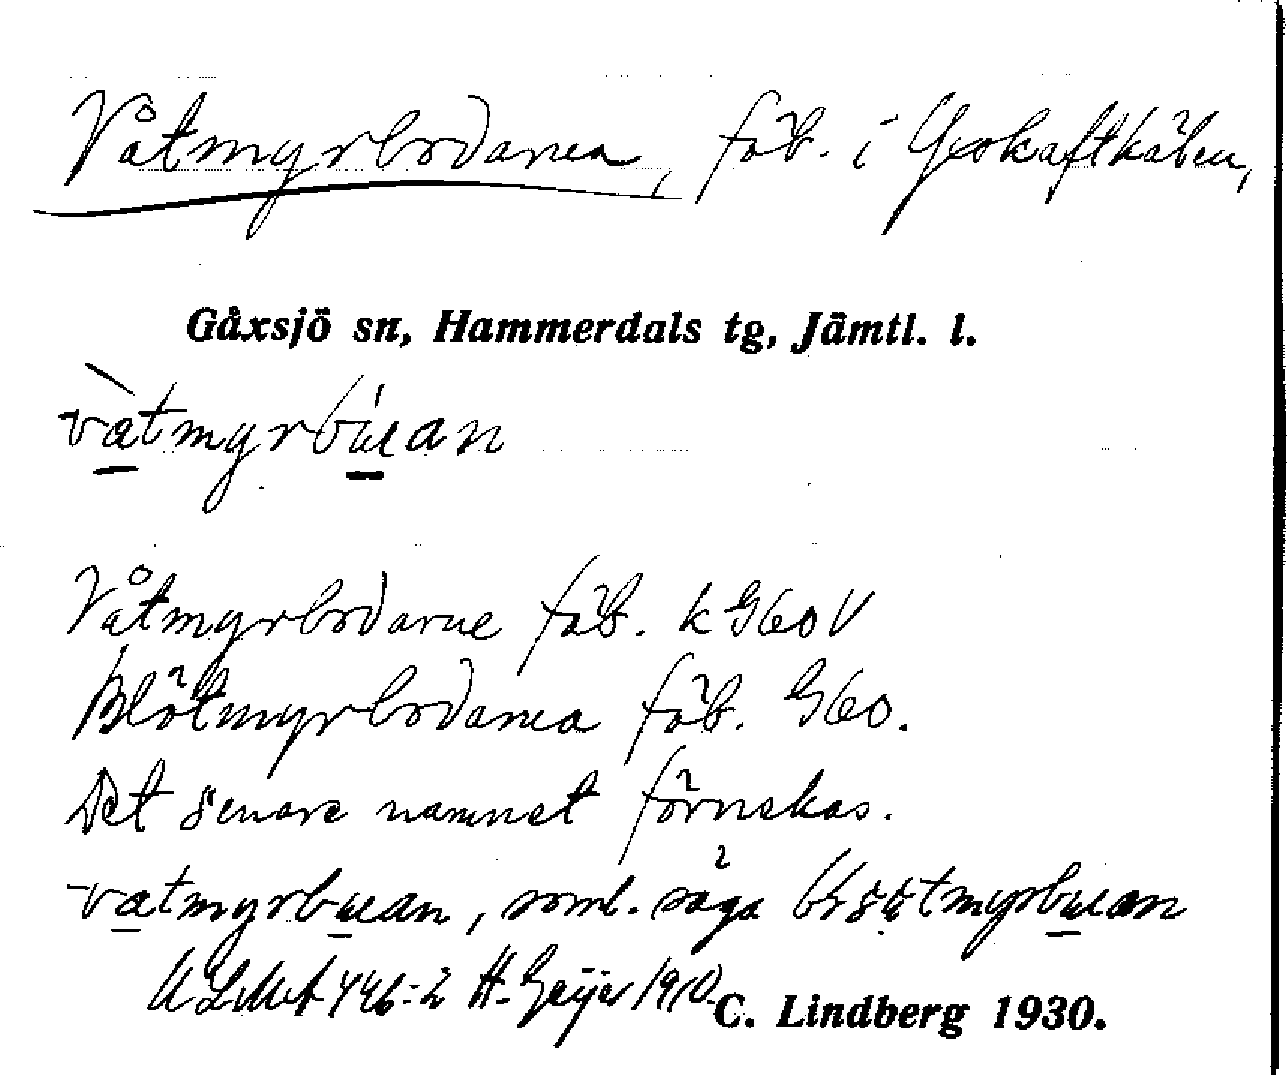 Våtmyrbodarna, fäb. i Yxskaftkälen,
Gåxsjö sn, Hammerdals tg, Jämtl. l.
vatmyrbuan
Våtmyrbodarne fäb. k G60V
Blötmyrbodarna fäb. G60.
Det senare namnet förnekas.
vatmyrbuan, soml. säga
H. Geijer 1910
C. Lindberg 1930.